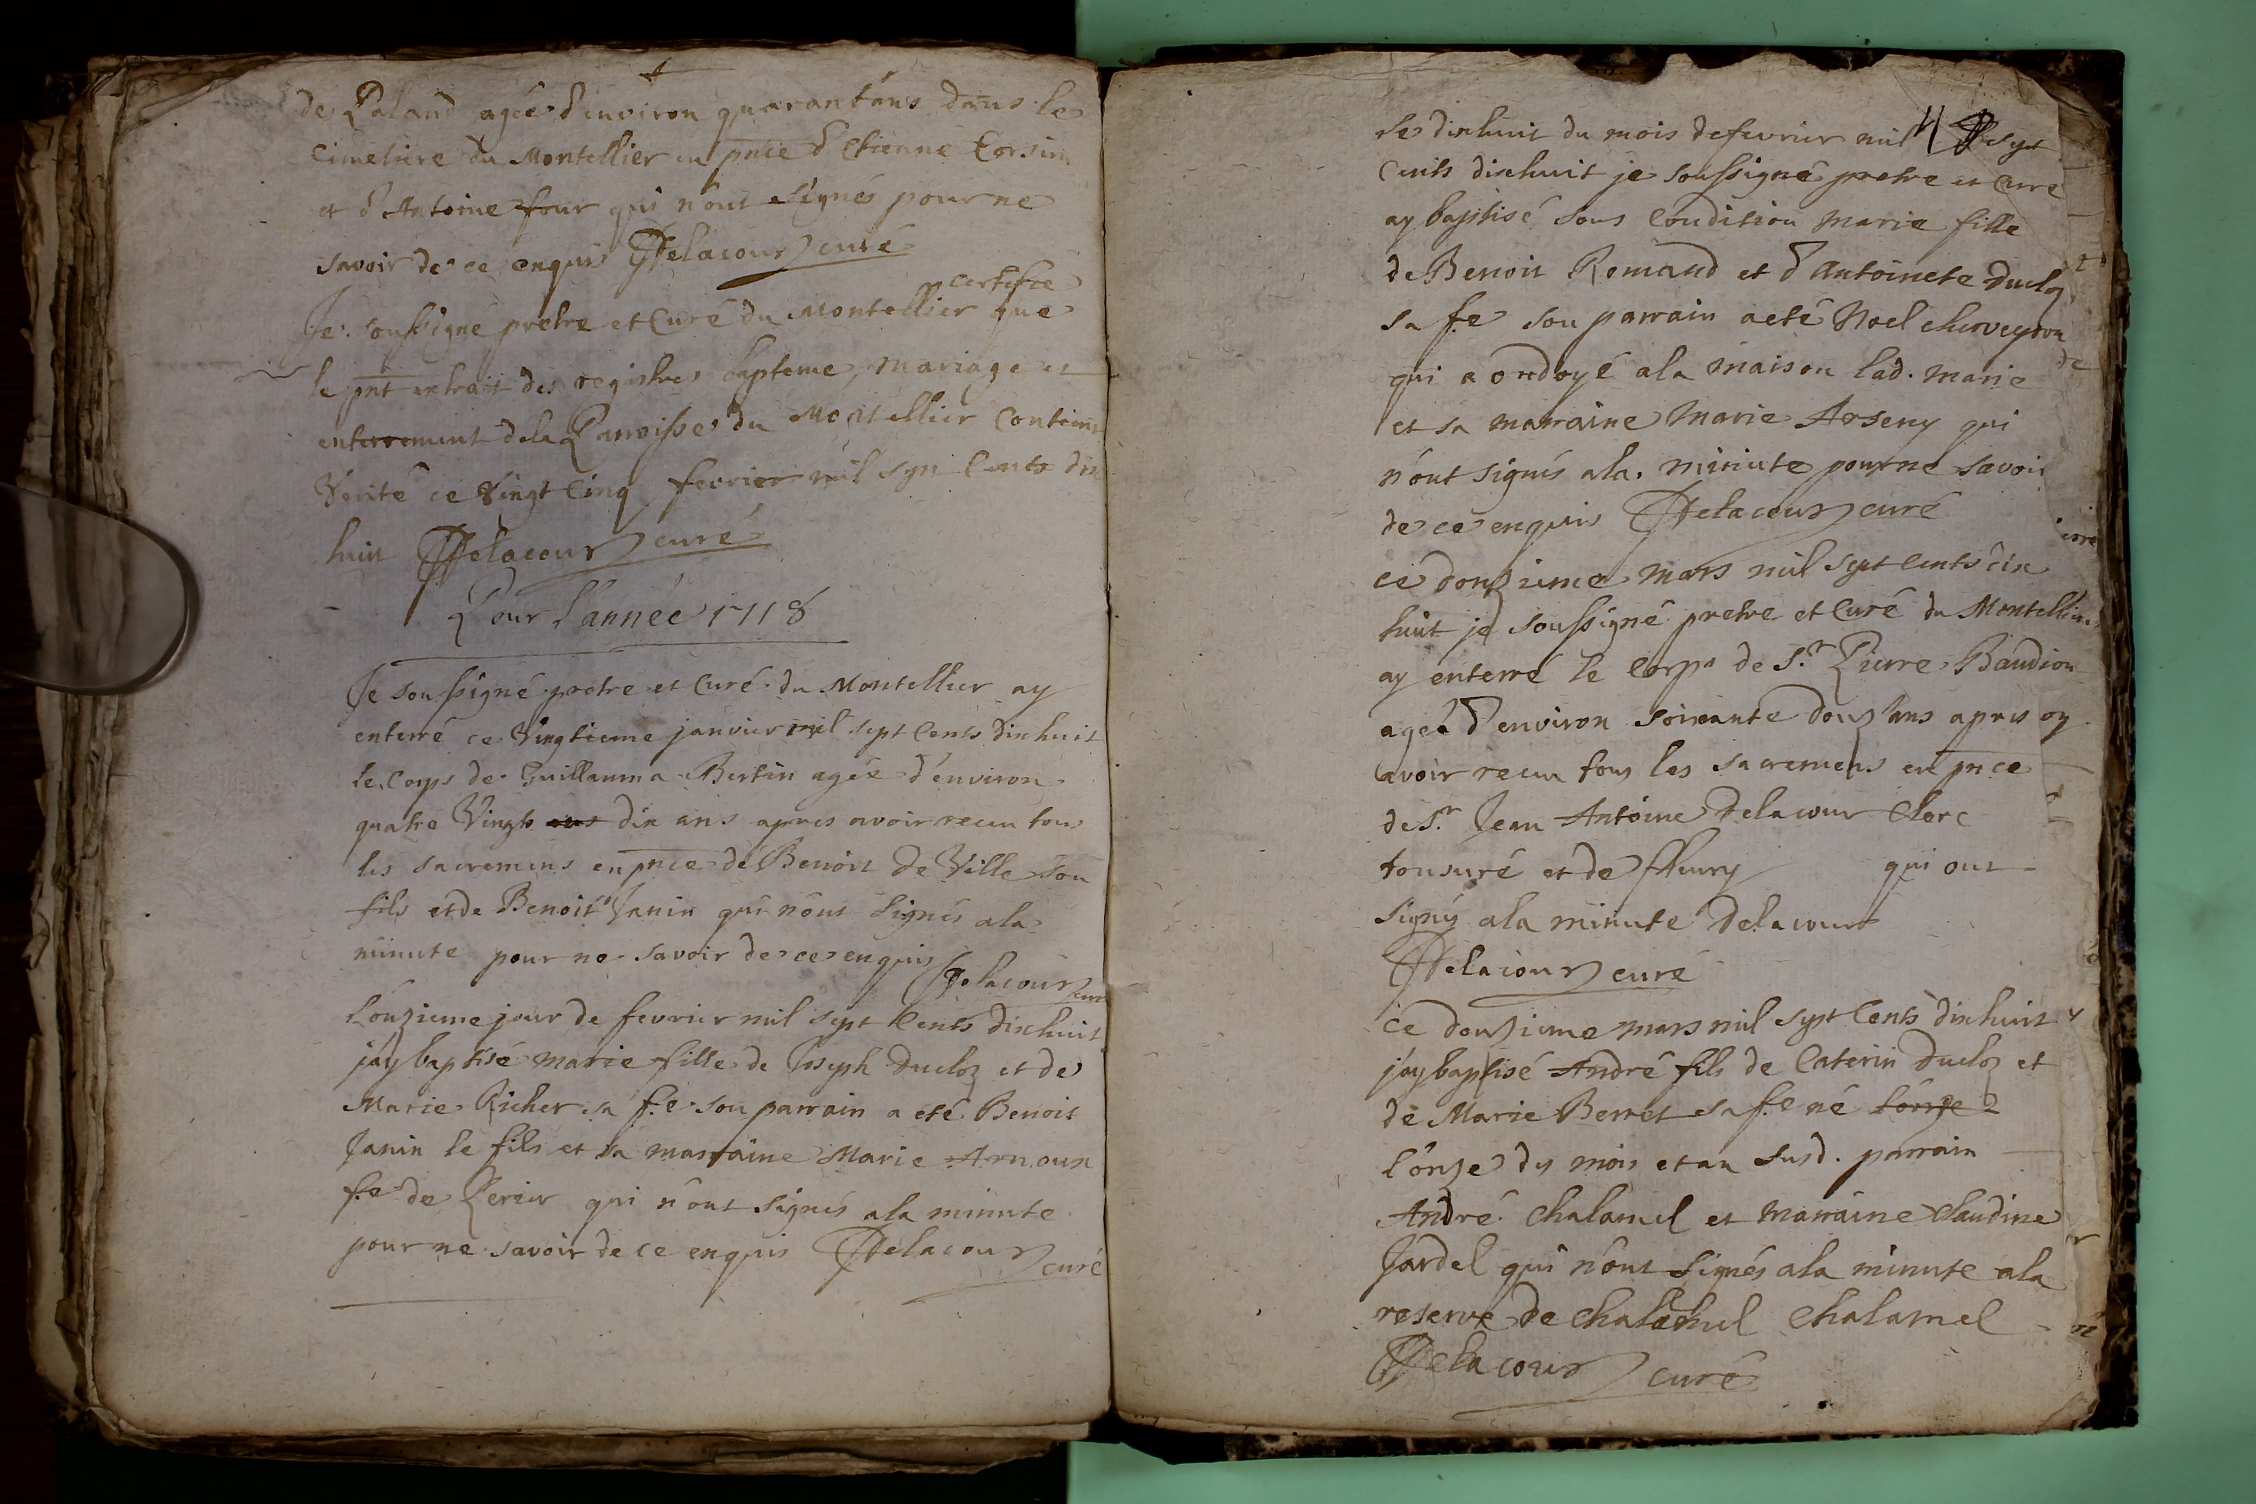 de Laland agée d'environ quarant'ans dans le
Cimetiere du Montellier en pnce d'Etienne Corsin
et d'Antoine four qui n'ont signés pour ne
savoir de ce enquis Delacour curé
certifie
Je soussigné pretre et Curé du Montellier que
le pnt extrait des registres bapteme, mariage et
enterrement dela Paroisse du Montellier Contient
Verité ce vingt Cinq fevrier mil sept Cents dix
huit Delacour curé
Pour l'année 1718
Je soussigné pretre et Curé du Montellier ay
enterré ce Vingtieme janvier mil sept Cents dixhuit
le Corps de Guillauma Bertin agée d'environ
quatre Vingts ans dix ans apres avoir receu tous
les sacremens en pnce de Benoit de Ville son
fils et de Benoit Janin qui n'ont signés ala
minute pour ne savoir de ce enquis
Delacour curé
L'onzieme jour de fevrier mil sept Cents dixhuit
j'ay baptisé marie fille de Joseph Ducloz et de
Marie Richer sa f.e son parrain a eté Benoit
Janin le fils et sa marraine Marie Arnoux
f.e de Perier qui n'ont signés ala minute
pour ne savoir de ce enquis Delacour
curé
4
Le dixhuit du mois de fevrier mil sept
Cents dixhuit je soussigné pretre et Curé
ay baptisé sous Condition marie fille
de Benoit Romand et d'Antoinete Ducloz
sa f.e son parrain a eté Noel cherveyron
qui a ondoyé ala maison lad. marie
et sa marraine Marie Arseny qui
n'ont signés ala minute pour ne savoir
de ce enquis Delacour curé
ce douzieme mars mil sept Cents dix
huit je soussigné pretre et Curé du Montellier
ay enterré le Corps de S.r Pierre Baudion
agée d'environ soixante douz'ans apres oy
avoir receu tous les sacremens en pnce
de S.r Jean Antoine Delacour Clerc
tonsuré et de fleury qui ont
signéz ala minute Delacour
Delacour curé
ce douzieme mars mil sept Cents dixhuit
j'ay baptisé André fils de Caterin Ducloz et
de Marie Berret sa f.e né l'onze
l'onze dy mois et an susd. parrain
André Chalamel et marraine Claudine
Jardel qui n'ont signés ala minute ala
reserve de Chalamel Chalamel
Delacour curé